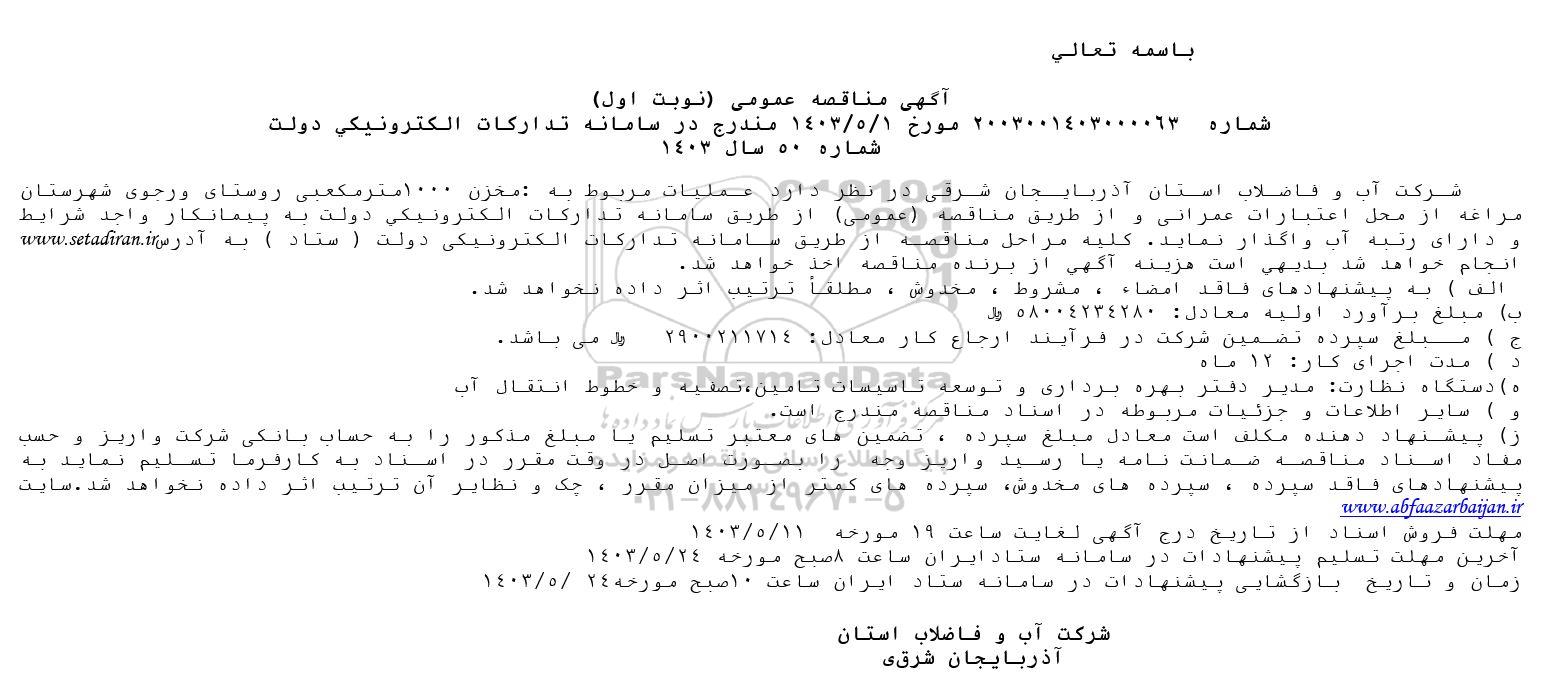 باسمه تعالي
آگهی مناقصه عمومی (نوبت اول)
شماره ۲۰۰۳۰۰۱٤۰۳۰۰۰۰٦۳ مورخ ۱٤۰۳/٥/۱ مندرج در سامانه تدارکات الکترونيکي دولت
شماره ٥۰ سال ۱٤۰۳
شرکت آب و فاضلاب استان آذربايجان شرقی در نظر دارد عمليات مربوط به :مخزن ۱۰۰۰مترمکعبی روستای ورجوی شهرستان
مراغه از محل اعتبارات عمرانی و از طريق مناقصه (عمومی) از طريق سامانه تدارکات الکترونيکي دولت به پيمانکار واجد شرايط
و دارای رتبه آب واگذار نمايد. کليه مراحل مناقصه از طريق سامانه تدارکات الکترونيکی دولت ( ستاد ) به آدرسwww.setadiran.ir
انجام خواهد شد بديهي است هزينه آگهي از برنده مناقصه اخذ خواهد شد.
الف ) به پيشنهادهای فاقد امضاء ، مشروط ، مخدوش ، مطلقاً ترتيب اثر داده نخواهد شد.
ب) مبلغ برآورد اوليه معادل: ٥۸۰۰٤۲۳٤۲۸۰ ﷼
ج ) مبلغ سپرده تضمين شرکت در فرآيند ارجاع کار معادل: ۲۹۰۰۲۱۱۷۱٤ ﷼ می باشد.
د ) مدت اجرای کار: ۱۲ ماه
ه)دستگاه نظارت: مدير دفتر بهره برداری و توسعه تاسيسات تامين،تصفيه و خطوط انتقال آب
و ) ساير اطلاعات و جزئيات مربوطه در اسناد مناقصه مندرج است.
ز) پيشنهاد دهنده مکلف است معادل مبلغ سپرده ، تضمين های معتبر تسليم يا مبلغ مذکور را به حساب بانکی شرکت واريز و حسب
مفاد اسناد مناقصه ضمانت نامه يا رسيد واريز وجه را بصورت اصل در وقت مقرر در اسناد به کارفرما تسليم نمايد به
پيشنهادهای فاقد سپرده ، سپرده های مخدوش، سپرده های کمتر از ميزان مقرر ، چک و نظاير آن ترتيب اثر داده نخواهد شد.سايت
www.abfaazarbaijan.ir
مهلت فروش اسناد از تاريخ درج آگهی لغايت ساعت ۱۹ مورخه ۱٤۰۳/٥/۱۱
آخرين مهلت تسليم پيشنهادات در سامانه ستادايران ساعت ۸صبح مورخه ۱٤۰۳/٥/۲٤
زمان و تاريخ بازگشايی پيشنهادات در سامانه ستاد ايران ساعت ۱۰صبح مورخه۲٤ /۱٤۰۳/٥
شرکت آب و فاضلاب استان
آذربايجان شرقی
ParsNamadData
مرکز فرآوری اطلاعات پارس نماد داده ها
پایگاه اطلاع رسانی مناقصه و مزایده
۰۲۱-۸۸۳٤۹٦۷۰-٥